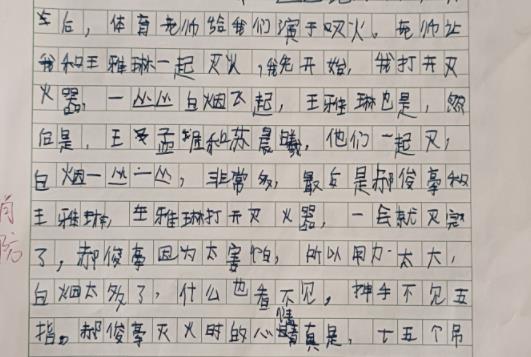 后，体育老师给我们演于灭火。老师让
我和王雅琳一起灭火，我先开始，我打开灭
火器，一丛丛白烟飞起，王雅琳也是，然
后是，王孟雅和苏晨曦，他们一起灭，
白烟一丛一丛，非常多，最后是郝俊豪和
王雅琳，王雅琳打开灭火器，一会就灭完
了，郝俊豪因为太害怕，所以用力太大，
白烟太多了，什么也看不见，抻手不见五
指。郝俊豪灭火时的心情真是，七五个吊